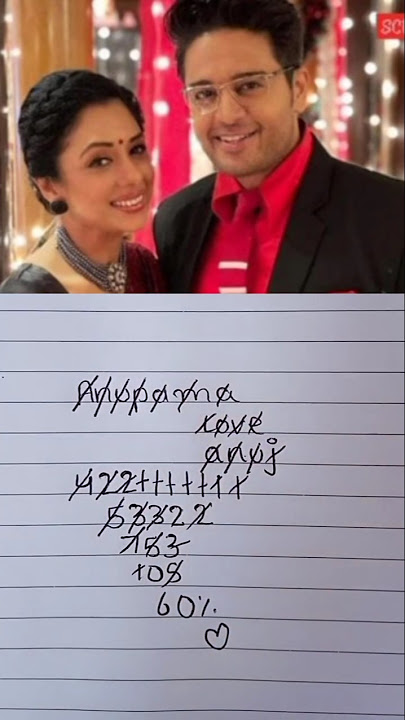 Anupama
love
anuj
4221111111
53322
753
105
60%